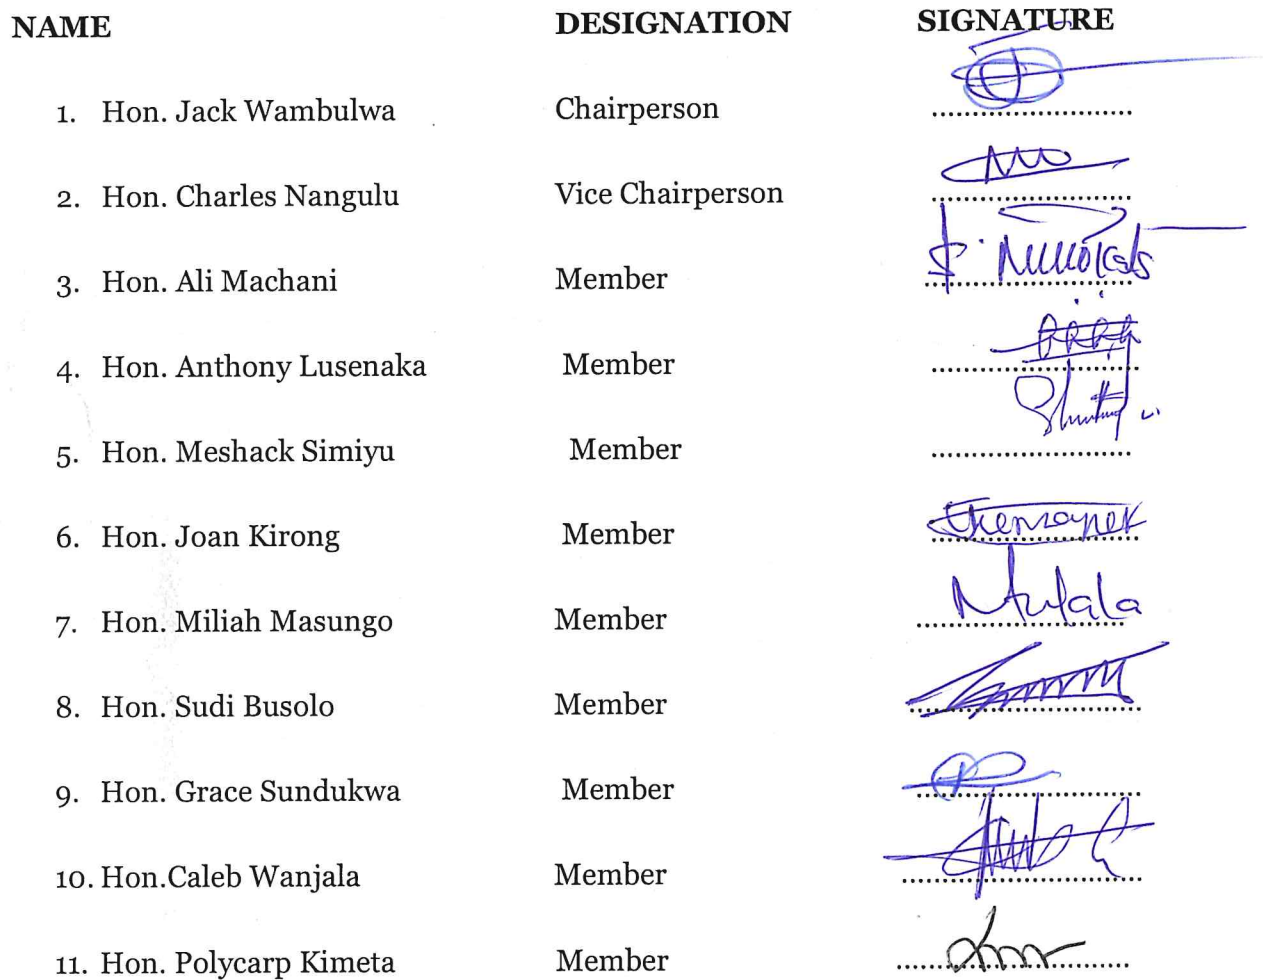 NAME DESIGNATION SIGNATURE
1. Hon. Jack Wambulwa Chairperson ........................
2. Hon. Charles Nangulu Vice Chairperson ........................
3. Hon. Ali Machani Member ........................
4. Hon. Anthony Lusenaka Member ........................
5. Hon. Meshack Simiyu Member ........................
6. Hon. Joan Kirong Member ........................
7. Hon. Miliah Masungo Member ........................
8. Hon. Sudi Busolo Member ........................
9. Hon. Grace Sundukwa Member ........................
10. Hon.Caleb Wanjala Member ........................
11. Hon. Polycarp Kimeta Member ........................